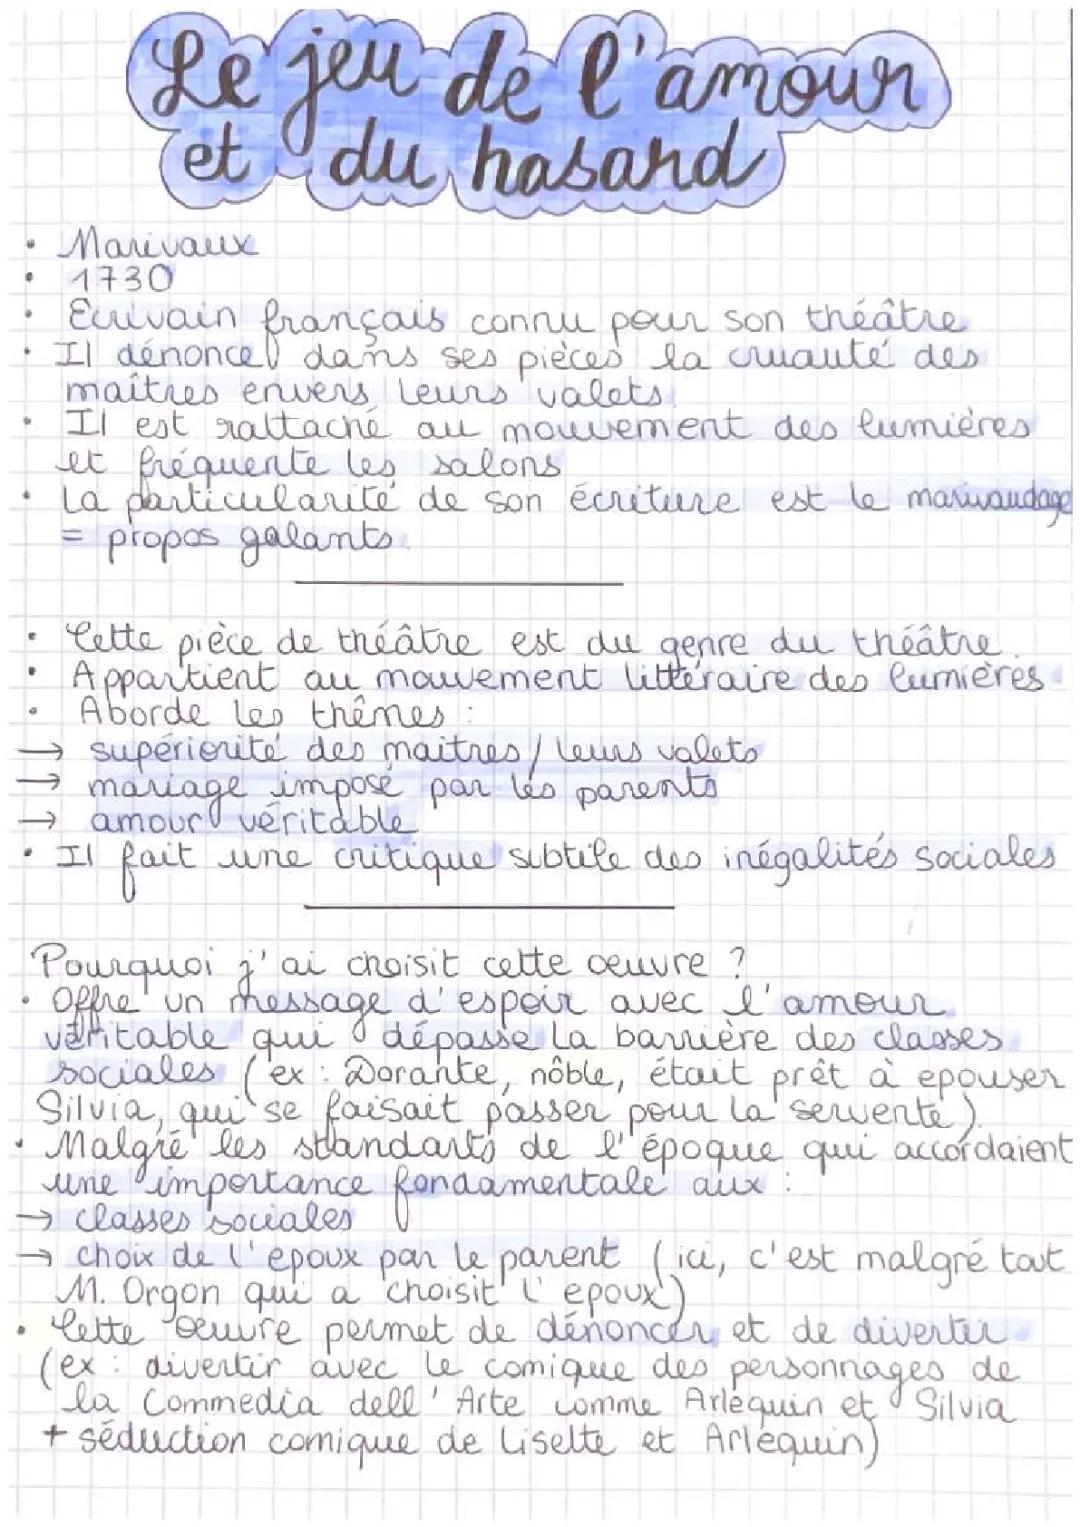 Le jeu de l'amour
et du hasard
• Marivaux
• 1730
• Ecrivain français connu pour son théâtre
• Il dénonce dans ses pièces la cruauté des
maîtres envers leurs valets.
• Il est rattaché au mouvement des lumières
et fréquente les salons
• La particularité de son écriture est le marivaudage
= propos galants.
• Cette pièce de théâtre est du genre du théâtre.
• Appartient au mouvement littéraire des lumières
• Aborde les thêmes :
→ supériorité des maitres / leurs valets
→ mariage imposé par les parents
→ amour véritable
• Il fait une critique subtile des inégalités sociales
Pourquoi j'ai choisit cette oeuvre ?
• Offre un message d'espoir avec l'amour
véritable qui dépasse la barrière des classes
sociales (ex : Dorante, nôble, était prêt à epouser
Silvia, qui se faisait passer pour la servente).
• Malgré les standarts de l'époque qui accordaient
une importance fondamentale aux :
→ classes sociales
→ choix de l'epoux par le parent (ici, c'est malgré tout
M. Orgon qui a choisit l'epoux)
• Cette oeuvre permet de dénoncer et de divertir
(ex : divertir avec le comique des personnages de
la Commedia dell'Arte comme Arlequin et Silvia
+ séduction comique de Liselte et Arlequin)